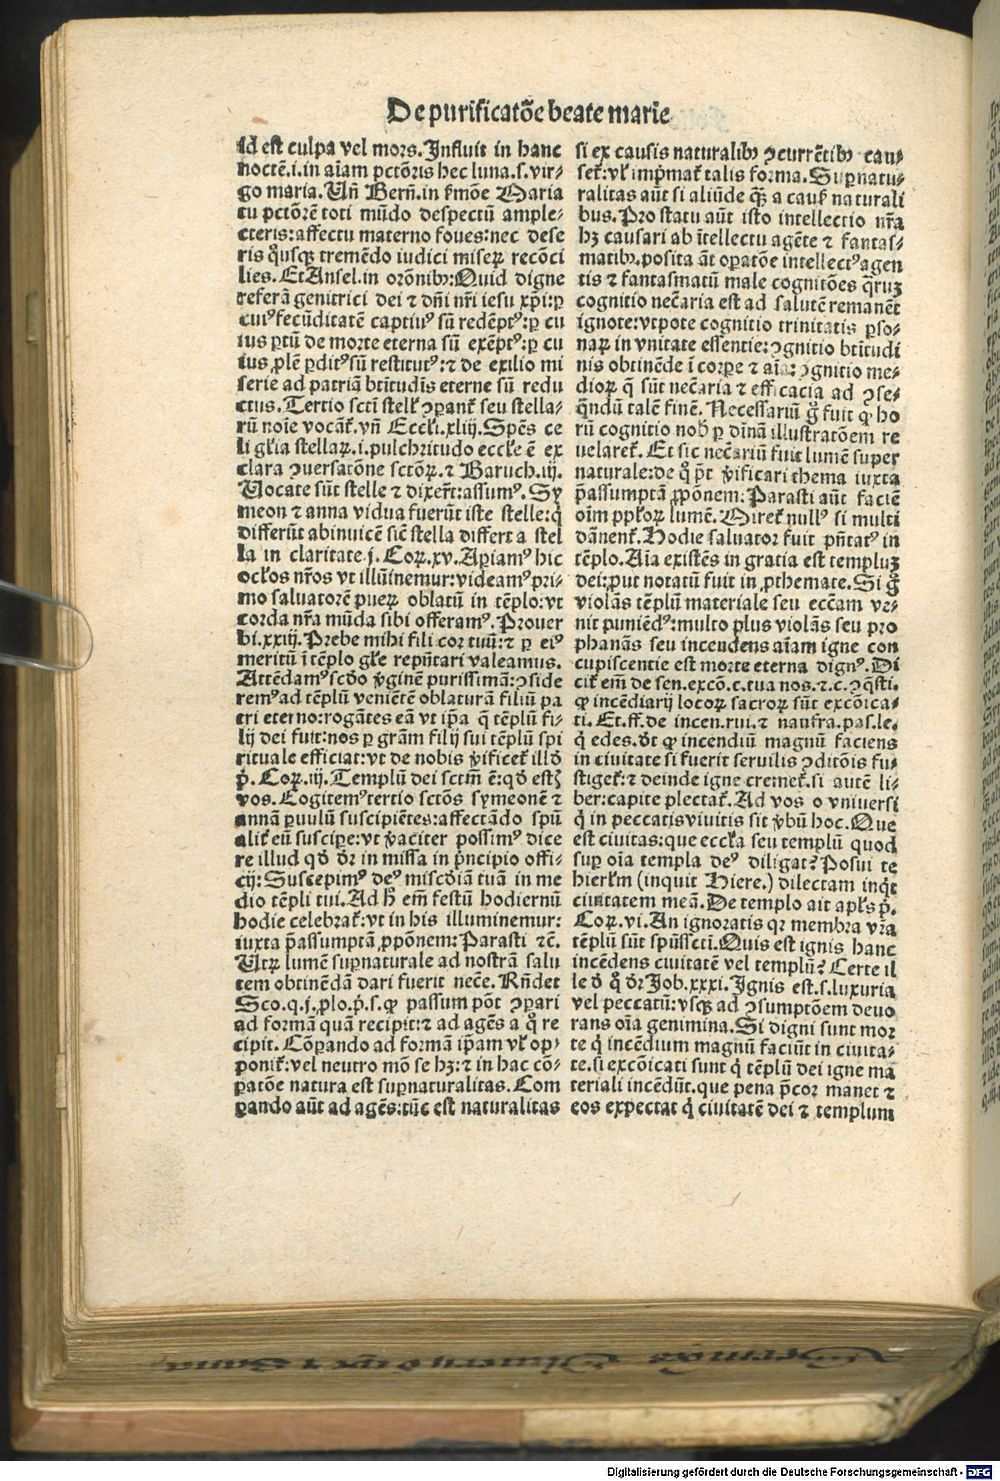 De purificatõe beate marie
id est culpa vel mors. Influit in hanc
noctẽ.i.in aĩam pctõris hec luna.s.vir⸗
go maria. Uñ Berñ.in ẜmõe Maria
tu pctõrẽ toti mũdo despectũ ample⸗
cteris:affectu materno foues:nec dese
ris q̊usqꝫ tremẽdo iudici miseꝝ recõci
lies. Et Ansel.in orõnibꝰ:Quid digne
referã genitrici dei ⁊ dñi nr̃i iesu xp̃i:ꝑ
cuiꝰ fecũditatẽ captiuꝰ sũ redẽptꝰ:ꝑ cu
ius ꝑtũ de morte eterna sũ exẽptꝰ:ꝑ cu
ius ꝓlẽ ꝑditꝰ sũ restitutꝰ:⁊ de exilio mi
serie ad patriã btitudĩs eterne sũ redu
ctus. Tertio sctĩ stelꝉ ꝯꝑant᷑ seu stella⸗
rũ noĩe vocãt᷑. vñ Eccꝉi.xliij. Spẽs ce
li gꝉia stellaꝝ.i.pulchritudo eccꝉe ẽ ex
clara ꝯuersatõne sctõꝝ.⁊ Baruch.iij.
Uocate sũt stelle ⁊ dixer̃t:assumꝰ. Sy
meon ⁊ anna vidua fuerũt iste stelle:q̃
differũt abinuicẽ sic̃ stella differt a stel
la in claritate.j. Coꝝ.xv. Aꝑiamꝰ hic
ocꝉos nr̃os vt illũinemur:videamꝰ pri⸗
mo saluatorẽ pueꝝ oblatũ in tẽplo:vt
corda nr̃a mũda sibi offeramꝰ. Prouer
bi.xxiij. Prebe mihi fili cor tuũ:⁊ ꝑ eiꝰ
meritũ ĩ tẽplo gꝉie repñtari valeamus.
Attẽdamꝰ scd̃o v̓ginẽ purissimã:ꝯside
remꝰ ad tẽplũ veniẽtẽ oblaturã filiũ pa
tri eterno:rogãtes eã vt ip̃a q̃ tẽplũ fi⸗
lij dei fuit:nos ꝑ gr̃am filij sui tẽplũ spi
rituale efficiat:vt de nobis v̓ificet᷑ illd̃
p̃. Coꝝ.iij. Templũ dei sctm̃ ẽ:qd̃ estꝭ
vos. Cogitemꝰ tertio sctõs symeonẽ ⁊
annã ꝑuulũ suscipiẽtes:affectãdo spũ
alit᷑ eũ suscipe:vt v̓aciter possimꝰ dice
re illud qd̃ dr̃ in missa in p̃ncipio offi⸗
cij: Suscepimꝰ deꝰ miscd̃iã tuã in me
dio tẽpli tui. Ad h̓ em̃ festũ hodiernũ
hodie celebrat᷑:vt in his illuminemur:
iuxta p̃assumptã ꝓpõnem: Parasti ⁊c̃.
Utꝝ lumẽ suꝑnaturale ad nostrã salu
tem obtinẽdã dari fuerit nec̃e. Rñdet
Sco.q.j.ꝓlo.p̃.s.ꝙ passum põt ꝯꝑari
ad formã quã recipit:⁊ ad agẽs a q̊ re
cipit. Cõꝑando ad formã ip̃am vꝉ op⸗
ponit᷑:vel neutro mõ se hꝫ:⁊ in hac cõ⸗
ꝑatõe natura est suꝑnaturalitas. Com
ꝑando aũt ad agẽs:tũc est naturalitas
si ex causis naturalibꝰ ꝯcurrẽtibꝰ cau⸗
set᷑:vꝉ imp̃mat᷑ talis forma. Suꝑnatu⸗
ralitas aũt si aliũde qꝫ̃ a caus᷑ naturali
bus. Pro statu aũt isto intellectio nr̃a
hꝫ causari ab ĩtellectu agẽte ⁊ fantas⸗
matibꝰ.posita ãt oꝑatõe intellectꝰ agen
tis ⁊ fantasmatũ male cognitões q̃ruꝫ
cognitio nec̃aria est ad salutẽ remanẽt
ignote:vtpote cognitio trinitatis ꝑso⸗
naꝝ in vnitate essentie:ꝯgnitio btĩtudi
nis obtinẽde ĩ corꝑe ⁊ aĩa: ꝯgnitio me⸗
dioꝝ q̃ sũt nec̃aria ⁊ efficacia ad ꝯse⸗
q̃ndũ talẽ finẽ. Necessariũ g̊ fuit ꝙ ho
rũ cognitio nob̃ ꝑ diuĩã illustratõem re
uelaret᷑. Et sic nec̃ariũ fuit lumẽ super
naturale:de q̊ p̃t v̓ificari thema iuxta
p̃assumptã ꝓpõnem: Parasti aũt faciẽ
oĩm ppꝉoꝝ lumẽ. Miret᷑ nullꝰ si multi
dãnent᷑. Hodie saluator fuit pñtatꝰ in
tẽplo. Aĩa existẽs in gratia est templuꝫ
dei:ꝓut notatũ fuit in ꝓthemate. Si g̊
violãs tẽplũ materiale seu ecc̃am ve⸗
nit puniẽdꝰ:multo plus violãs seu pro
phanãs seu incendens aĩam igne con
cupiscentie est morte eterna dignꝰ. Di
cit᷑ em̃ de sen.excõ.c.tua nos.⁊.c.ꝯq̃sti.
ꝙ incẽdiarij locoꝝ sacroꝝ sũt excõica⸗
ti. Et.ff.de incen.rui.⁊ naufra.pas.le.
q̃ edes.dt̃ ꝙ incendiũ magnũ faciens
in ciuitate si fuerit seruilis ꝯditõis fu⸗
stiget᷑:⁊ deinde igne cremet᷑.si autẽ li⸗
ber:capite plectat᷑. Ad vos o vniuersi
q̓ in peccatis viuitis sit v̓bũ hoc. Que
est ciuitas:que eccꝉa seu templũ quod
suꝑ oĩa templa deꝰ diligat? Posui te
hierꝉm (inquit Hiere.) dilectam inq̃t
ciuitatem meã. De templo ait apꝉs p̃.
Coꝝ.vi. An ignoratis qꝛ membra vr̃a
tẽplũ sũt spũssctĩ. Quis est ignis hanc
incẽdens ciuitatẽ vel templũ? Certe il
le d̓ q̊ dr̃ Job.xxxi. Ignis est.s.luxuria
vel peccatũ:vsqꝫ ad ꝯsumptõem deuo
rans oĩa genimina. Si digni sunt mor
te q̓ incẽdium magnũ faciũt in ciuita⸗
te.si excõicati sunt q̓ tẽplũ dei igne ma
teriali incẽdũt.que pena p̃cor manet ⁊
eos expectat q̓ ciuitatẽ dei ⁊ templum
Digitalisierung gefördert durch die Deutsche Forschungsgemeinschaft - DFG